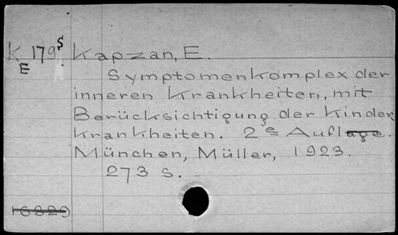 K 179 s Kapzan, E.
E
Symptomenkomplex der
inneren Krankheiten, mit
Berücksichtigung der Kinder
krankheiten. 2e Auflage.
München, Müller, 1923.
273 S.
16829